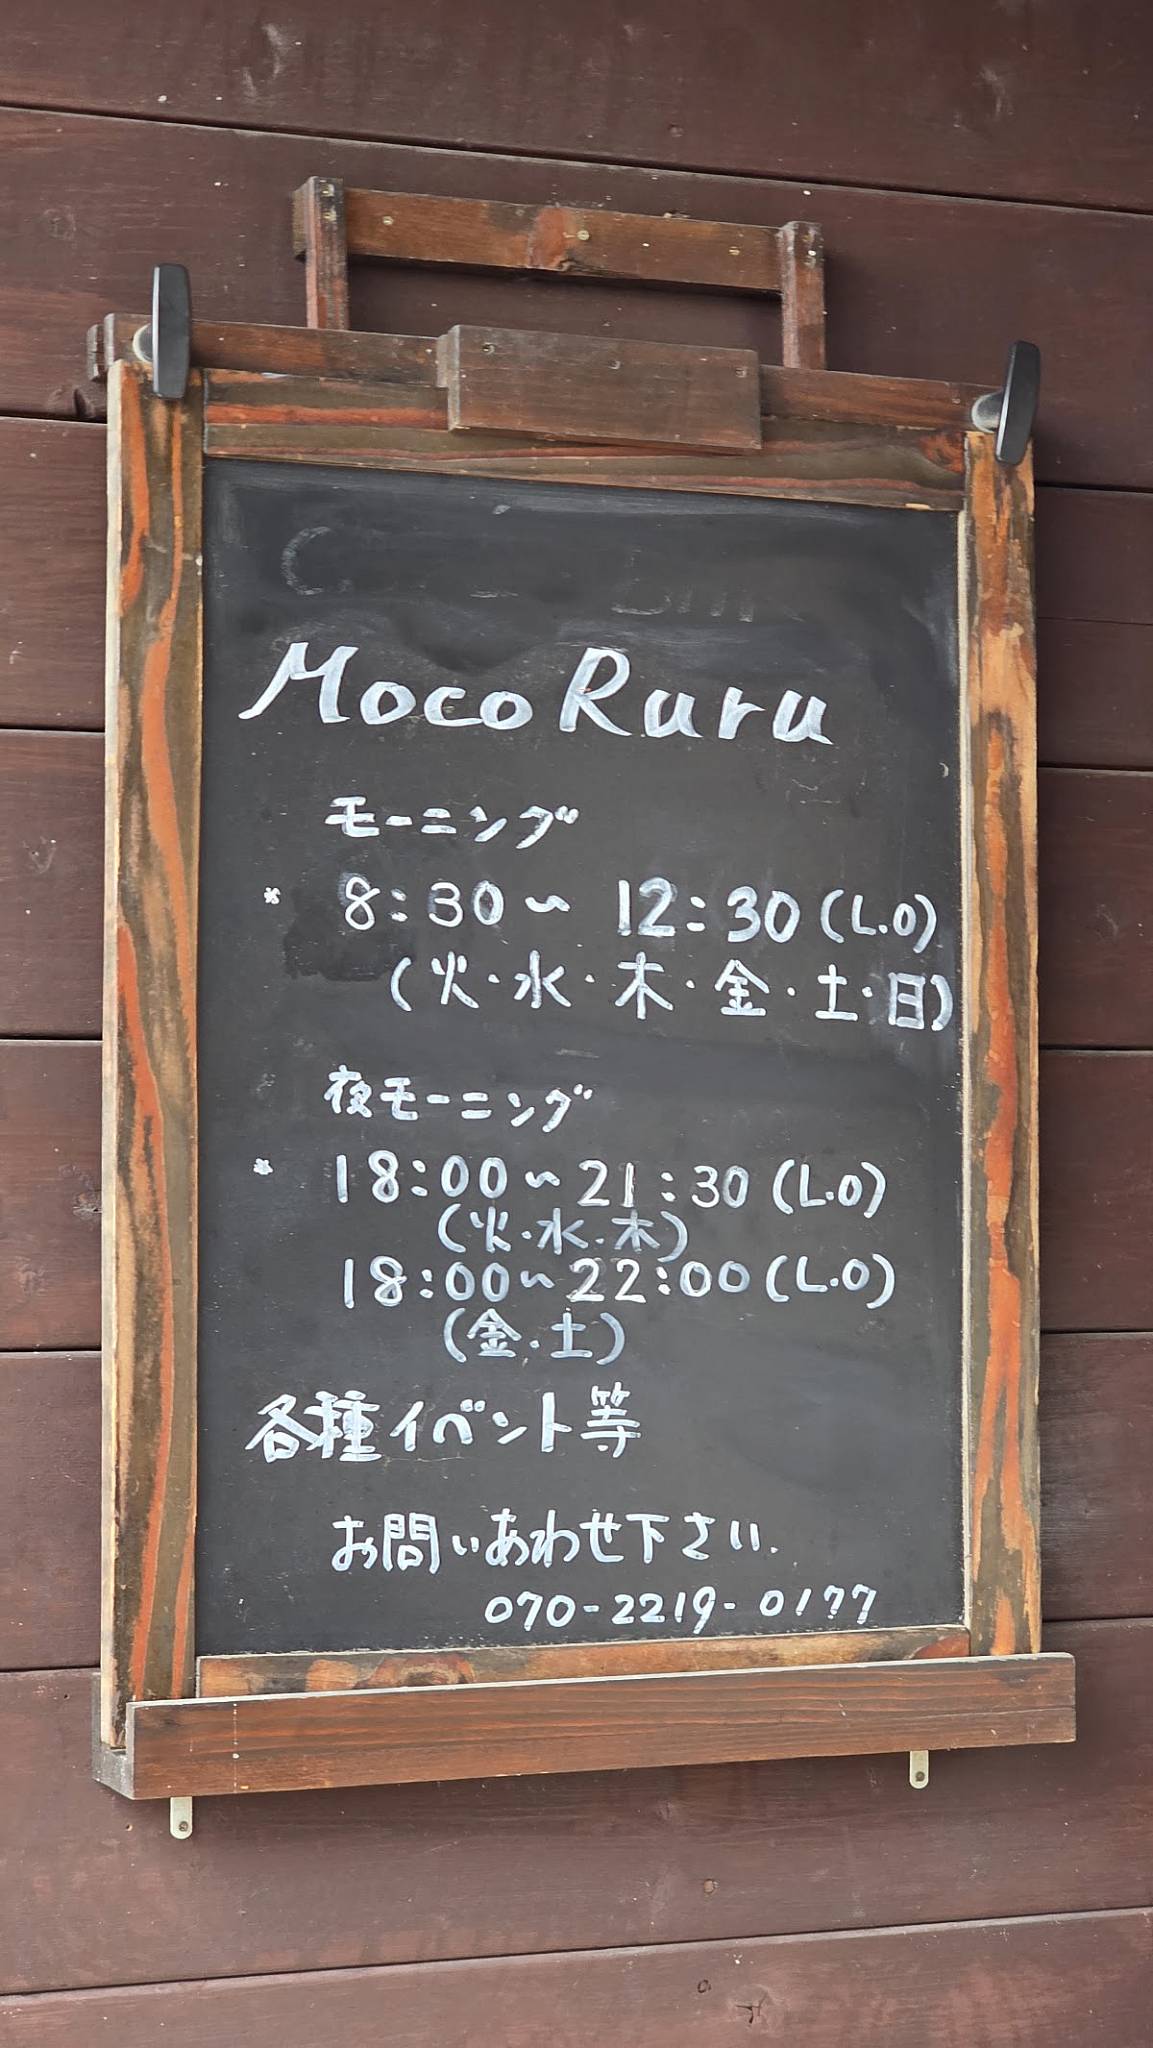 Moco Ruru
モーニング
* 8:30~ 12:30 (L.O)
(火・水・木・金・土・日)
夜モーニング
* 18:00~21:30 (L.O)
(火・水・木)
18:00~22:00 (L.O)
(金・土)
各種イベント等
お問いあわせ下さい.
070-2219-0177